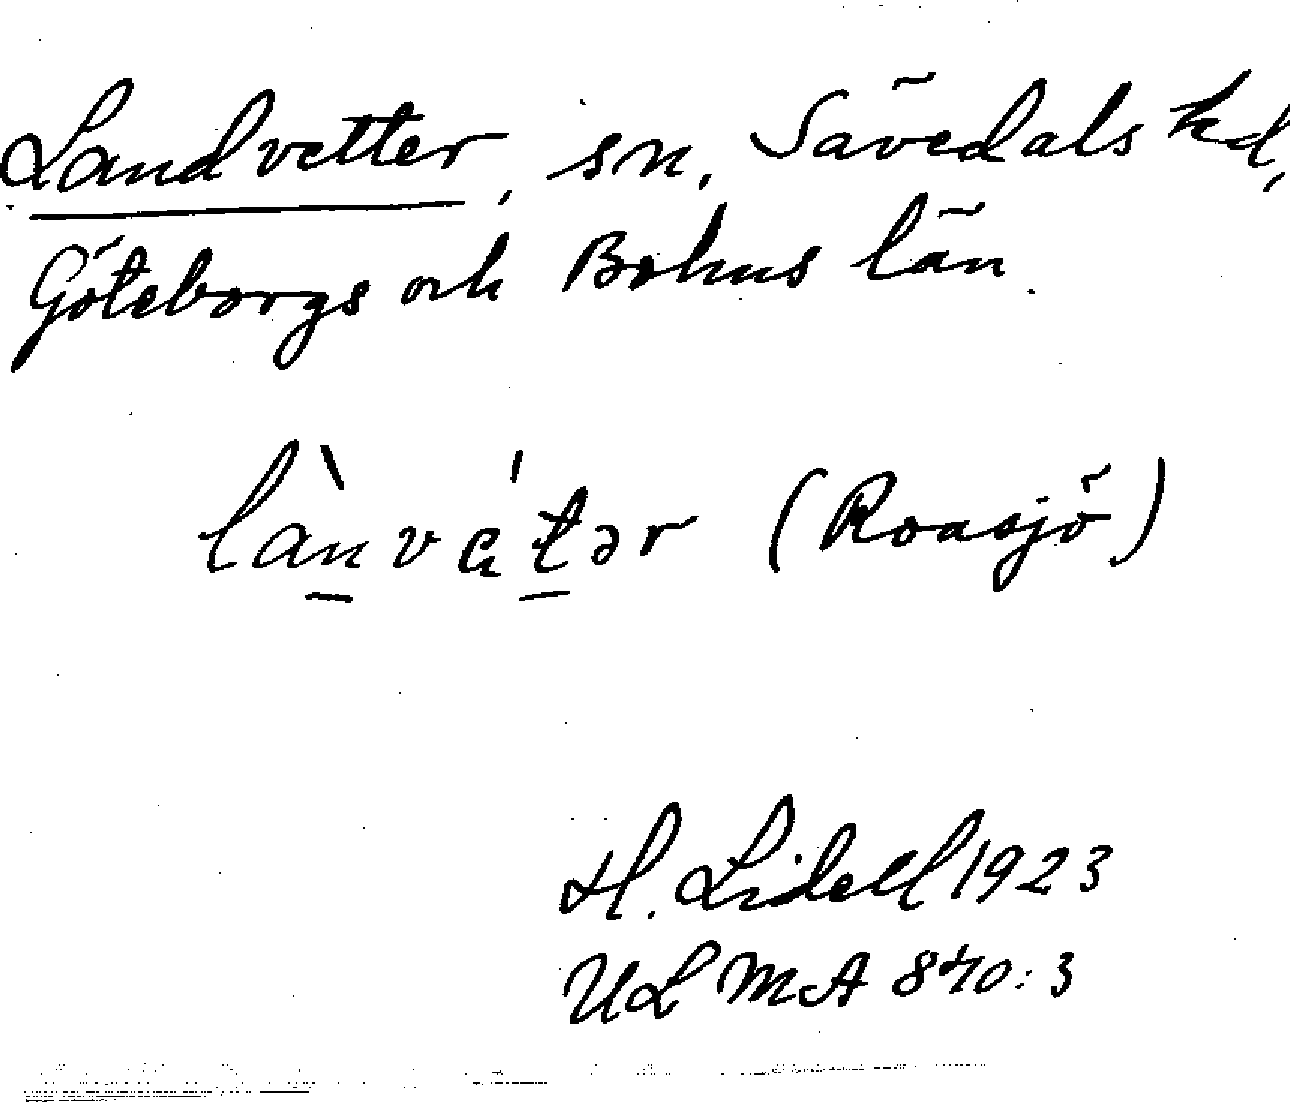 Landvetter, sn, Sävedals hd,
Göteborgs och Bohus län.
la̠n̠vät̠ər (Roasjö)
H. Lidell 1923
ULMA 840:3